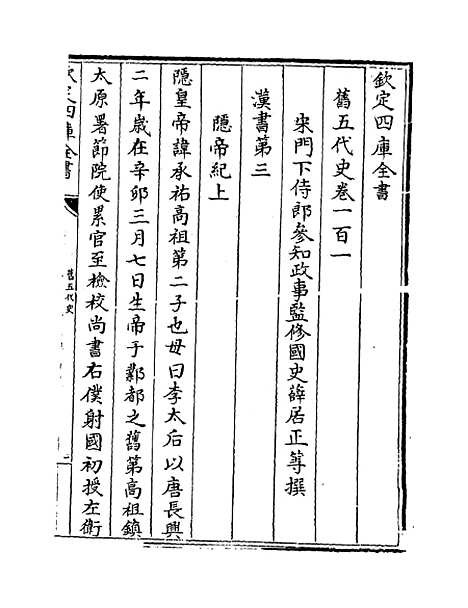 欽定四庫全書
舊五代史卷一百一
宋門下侍郎參知政事監修國史薛居正等撰
漢書第三
隱帝紀上
隱皇帝諱承祐高祖第二子也母曰李太后以唐長興
二年歲在辛卯三月七日生帝于鄴都之舊第高祖鎮
太原署節院使累官至檢校尚書右僕射國初授左衛
欽定四庫全書
舊五代史